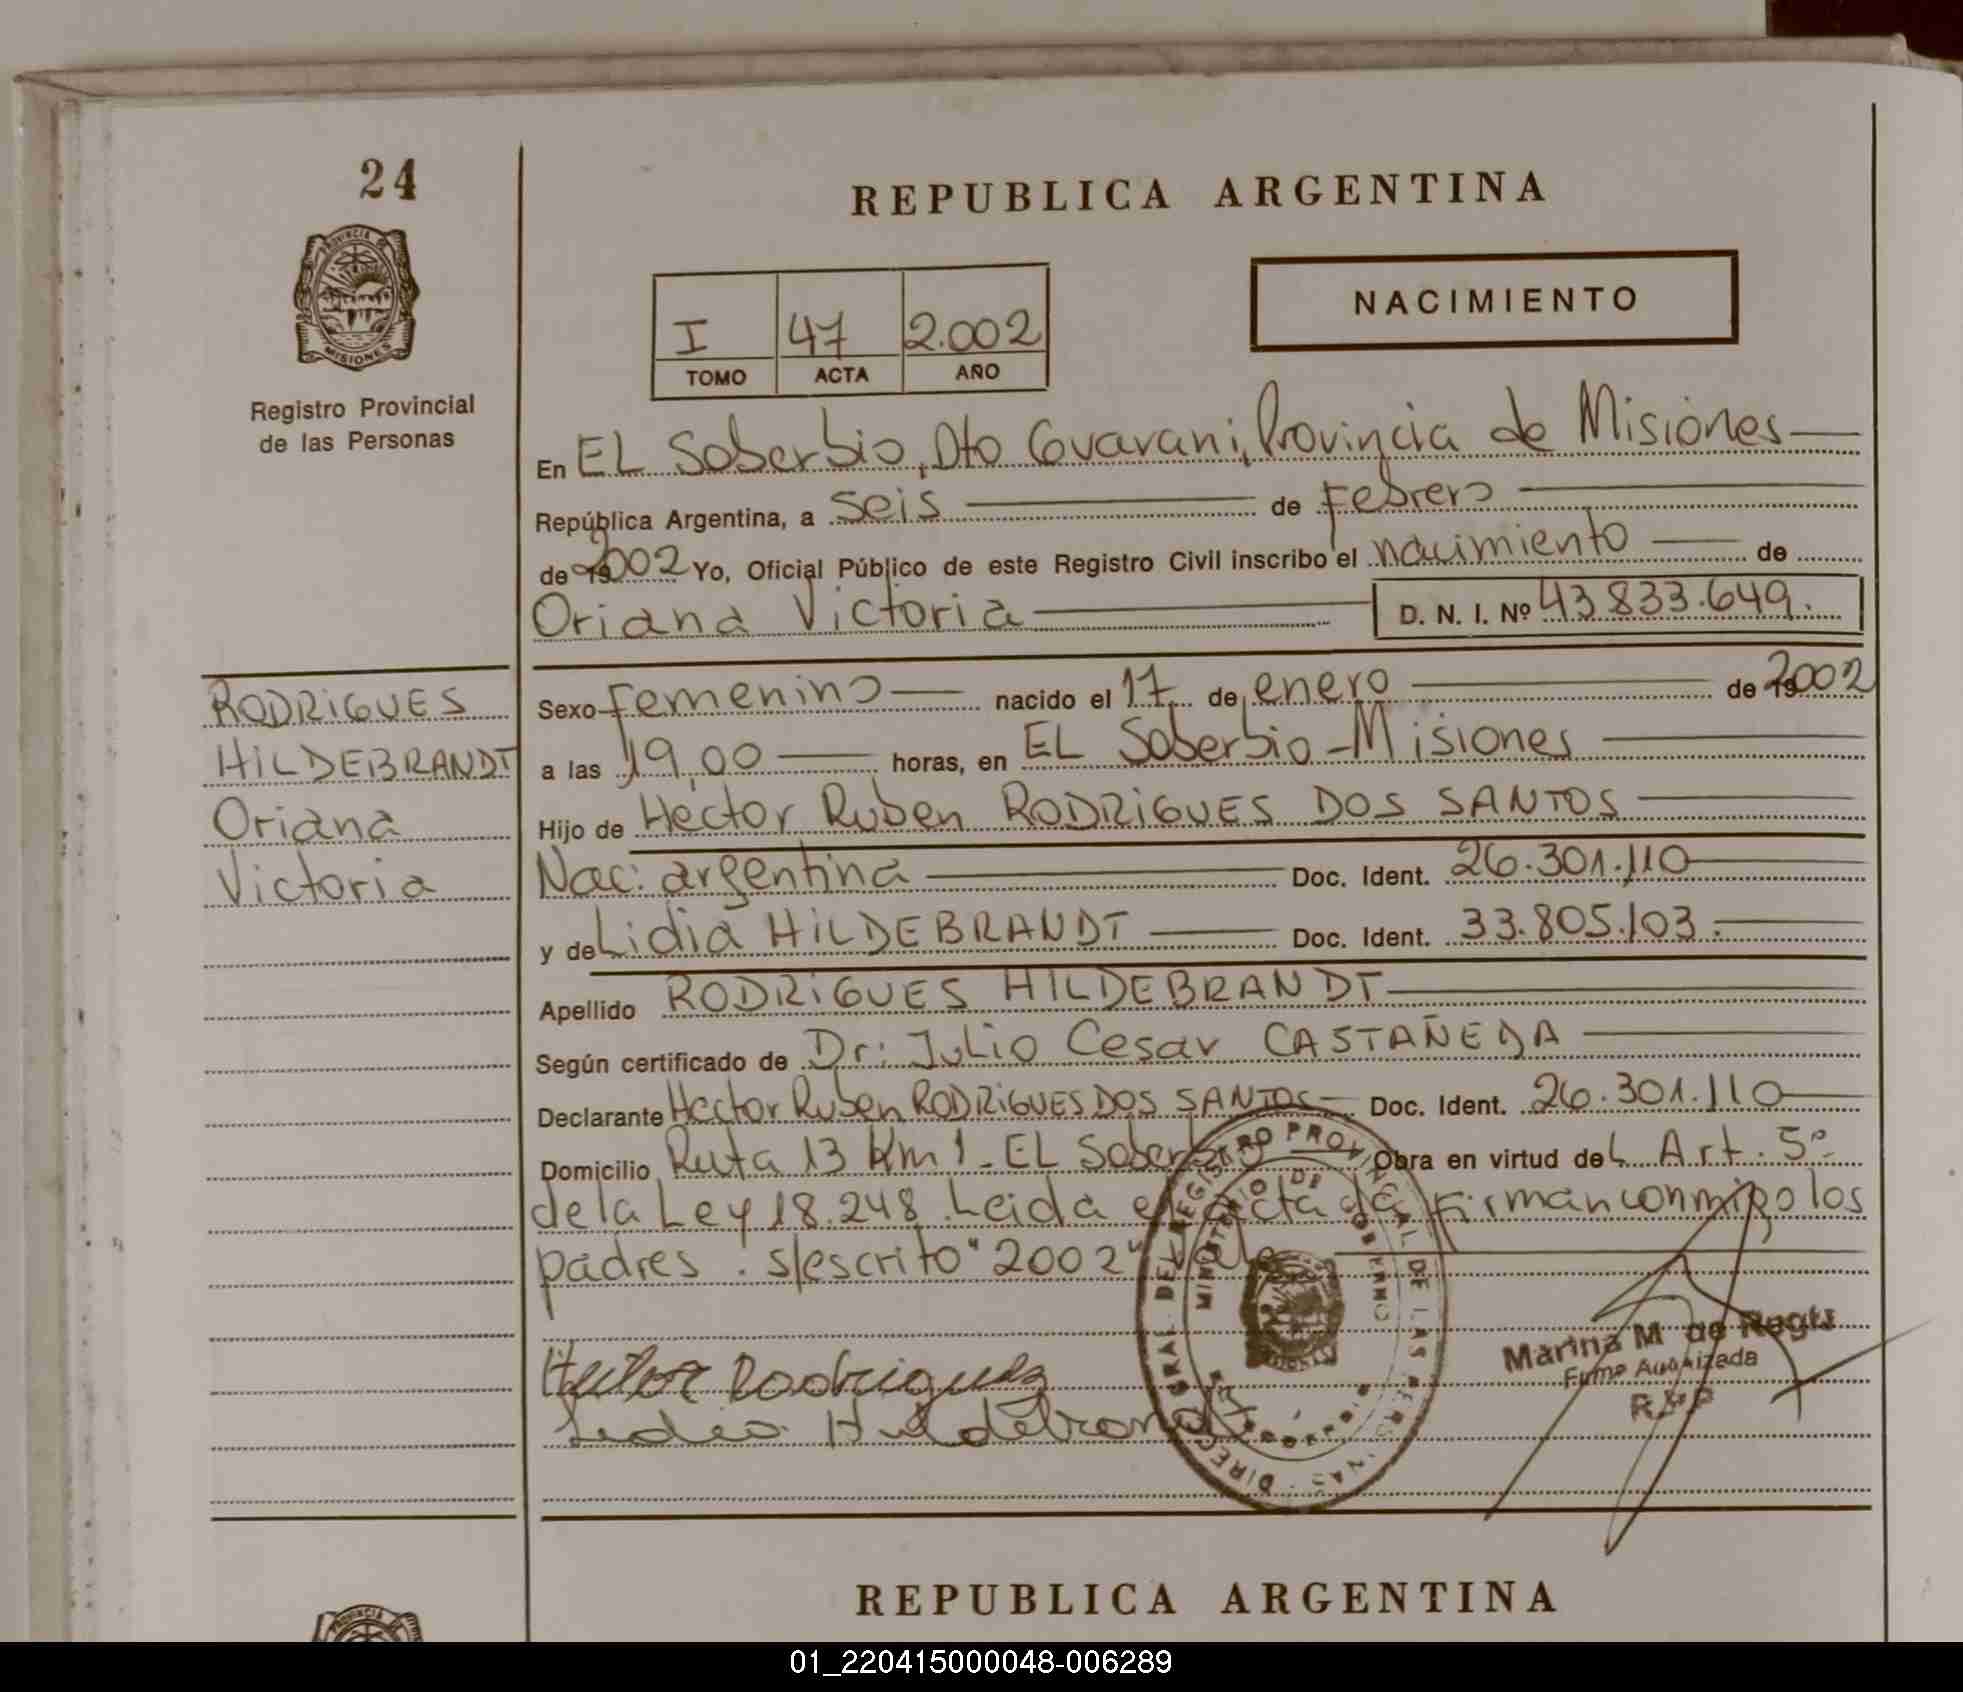 24
REPUBLICA ARGENTINA
PROVINCIA DE
MISIONES
Registro Provincial
de las Personas
I 47 2.002
TOMO ACTA AÑO
NACIMIENTO
En EL Soberbio, Dto Guarani, Provincia de Misiones
República Argentina, a seis de Febrero
de 19 2002 Yo, Oficial Público de este Registro Civil inscribo el nacimiento de
Oriana Victoria D. N. I. Nº 43.833.649.
RODRIGUES
HILDEBRANDT
Oriana
Victoria
Sexo Femenino nacido el 17 de enero de 19 2002
a las 19,00 horas, en EL Soberbio - Misiones
Hijo de Hector Ruben RODRIGUES DOS SANTOS
Nac: argentina Doc. Ident. 26.301.110
y de Lidia HILDEBRANDT Doc. Ident. 33.805.103.
Apellido RODRIGUES HILDEBRANDT
Según certificado de Dr: Julio Cesar CASTAÑEDA
Declarante Hector Ruben RODRIGUES DOS SANTOS Doc. Ident. 26.301.110
Domicilio Ruta 13 Km 1 - EL Soberbio Obra en virtud del Art. 5º
de la Ley 18.248. Leida el acta la Firman conmigo los
padres. s/escrito "2002" Vale
Hector Rodriguez
Lidia Hildebrandt
DIREC GRAL DEL REGISTRO PROVINCIAL DE LAS PERSONAS
MINISTERIO DE GOBIERNO
Marina M de
Firma Autorizada
R.P.P
REPUBLICA ARGENTINA
PROVINCIA DE
01_220415000048-006289